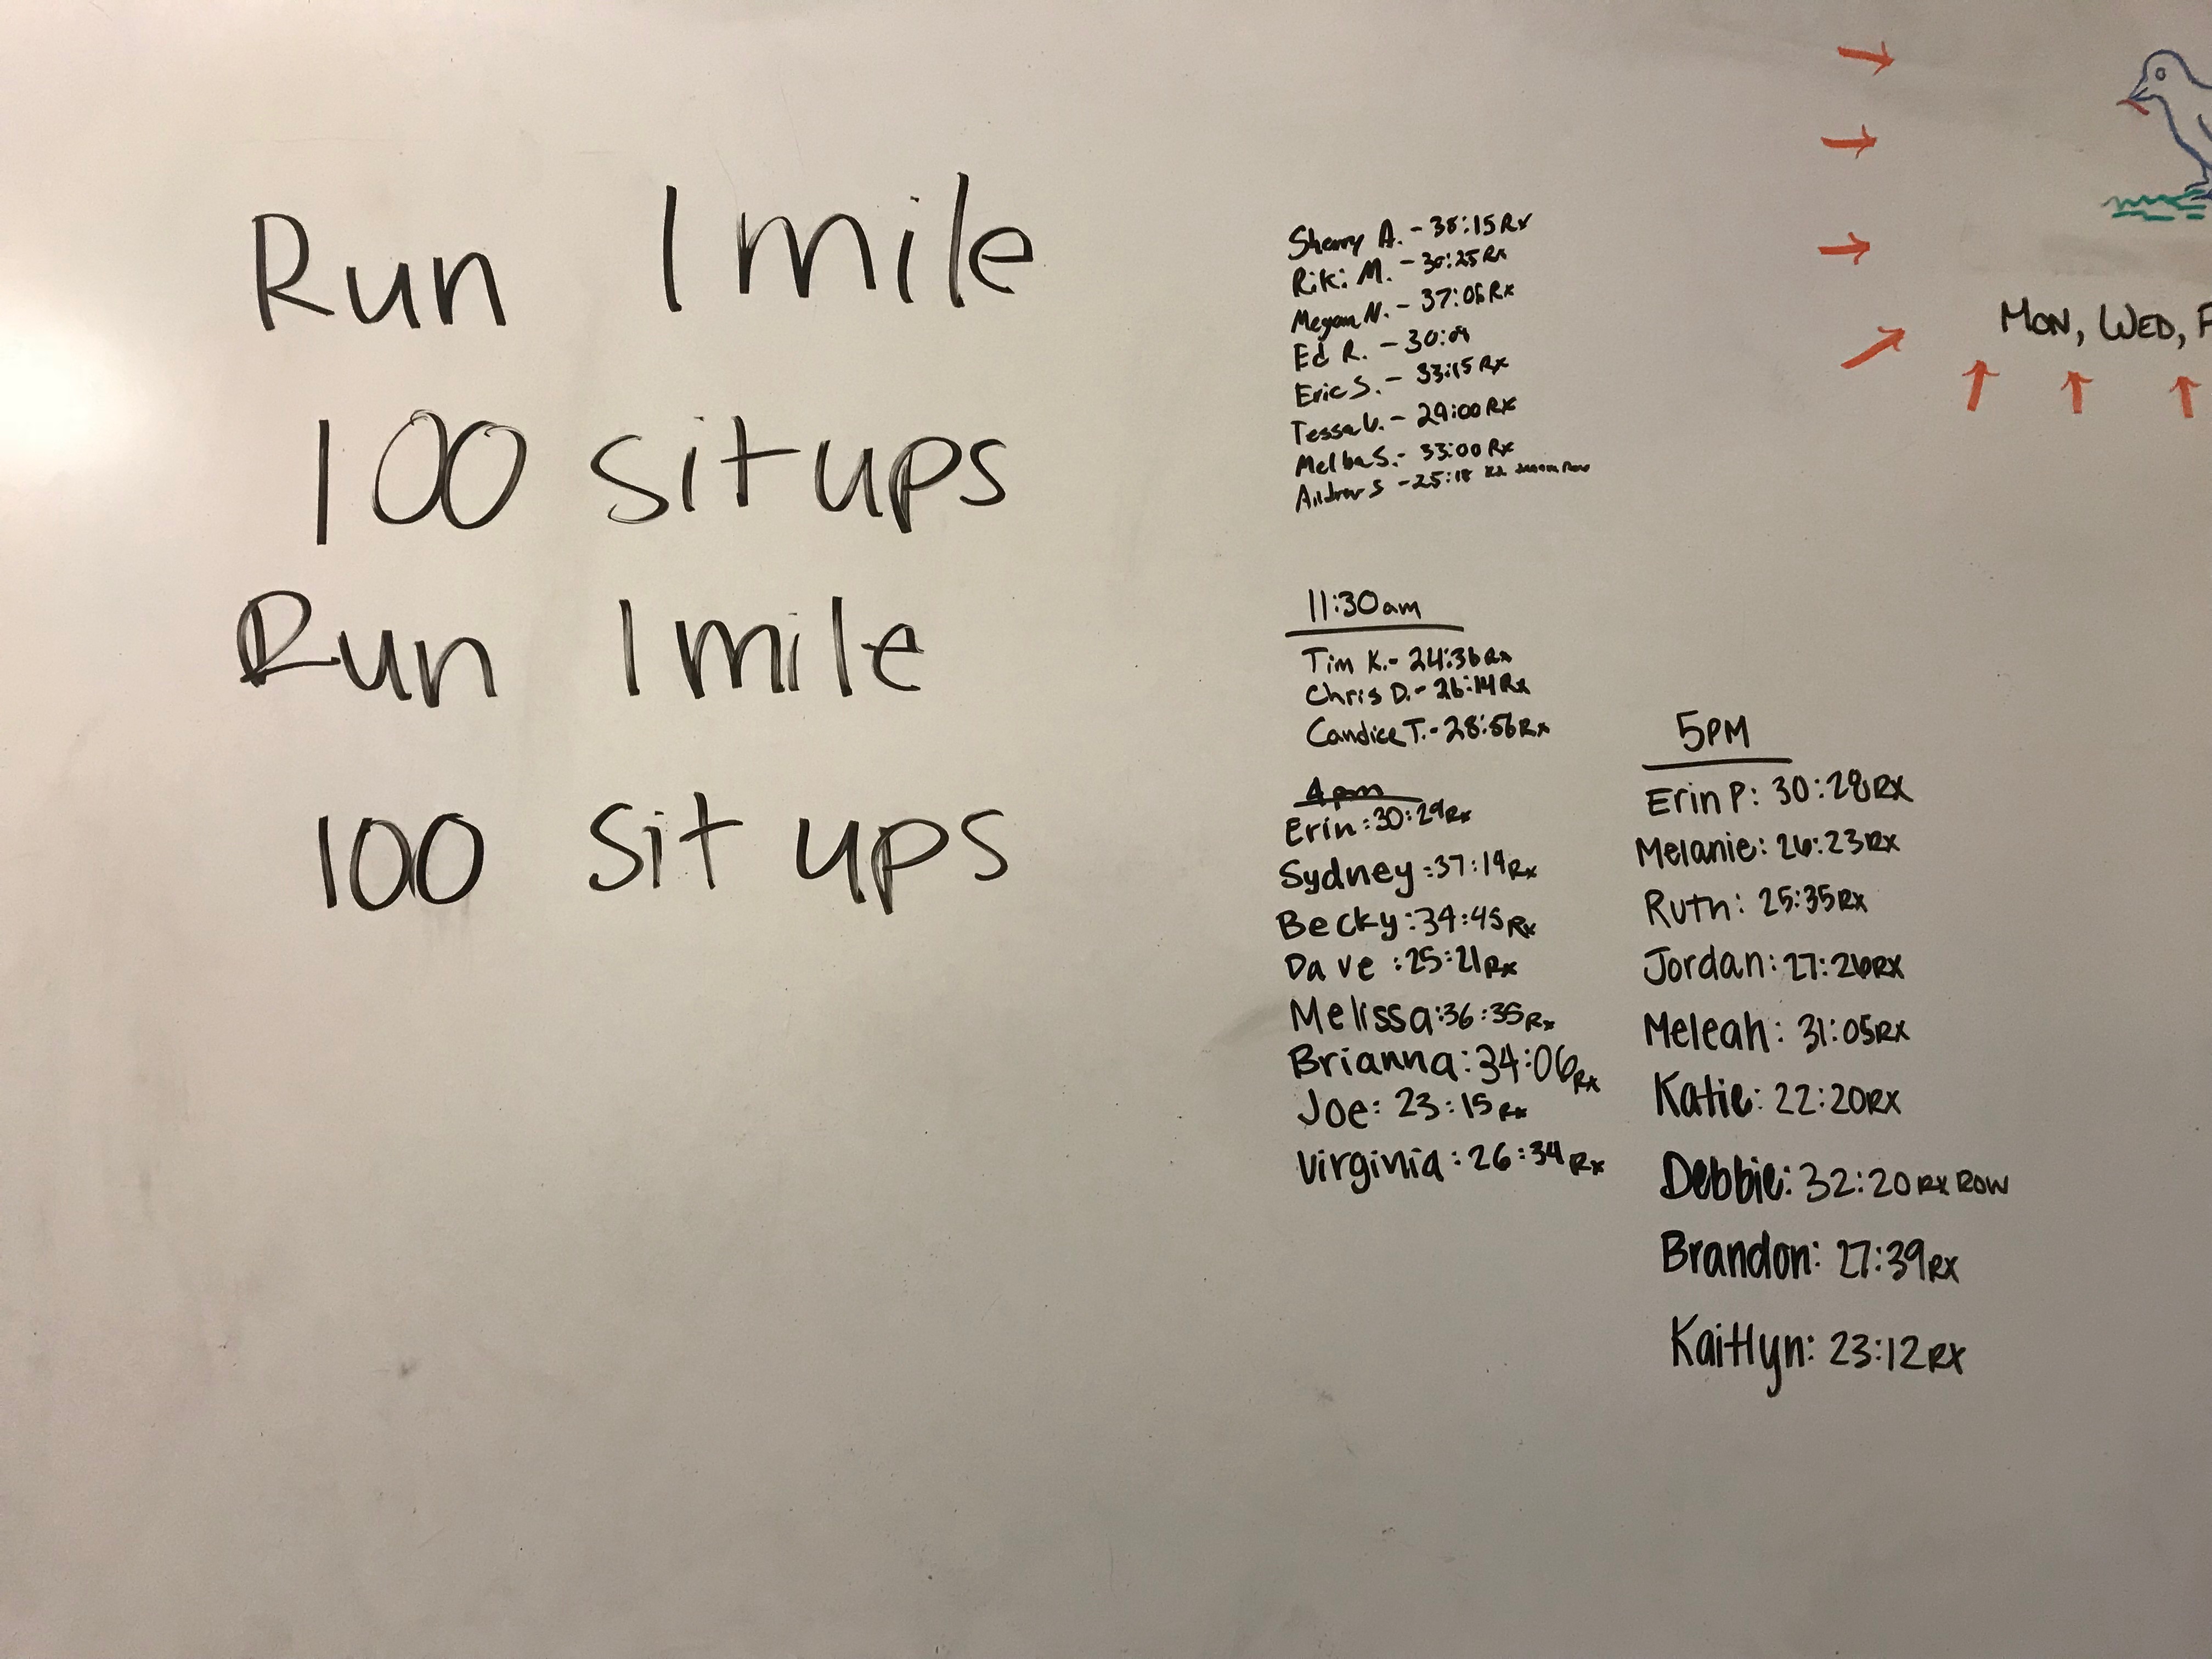 Run 1 mile
100 situps
Run 1 mile
100 sit ups
Sherry A. - 38:15 Rx
Riki M. - 30:25 Rx
Megan N. - 37:06 Rx
Ed R. - 30:09
Eric S. - 33:15 Rx
Tessa - 29:00 Rx
Melba S. - 33:00 Rx
Andrew S - 25:18 Row
11:30am
Tim K. - 24:36 Rx
Chris D. - 26:14 Rx
Candice T. - 28:56 Rx
4pm
Erin: 30:29 Rx
Sydney: 37:19 Rx
Becky: 34:45 Rx
Dave: 25:21 Rx
Melissa: 36:35 Rx
Brianna: 34:06 Rx
Joe: 23:15 Rx
Virginia: 26:34 Rx
5PM
Erin P: 30:28 RX
Melanie: 26:23 RX
Ruth: 25:35 RX
Jordan: 27:26 RX
Meleah: 31:05 RX
Katie: 22:20 RX
Debbie: 32:20 RX ROW
Brandon: 27:39 RX
Kaitlyn: 23:12 RX
MON, WED, F